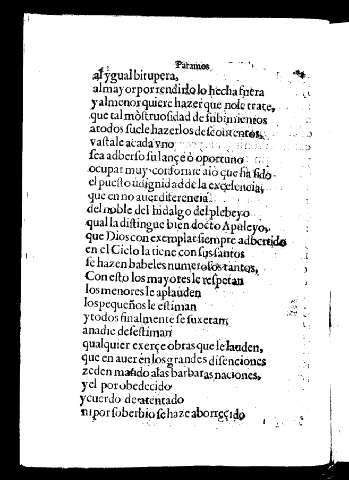 Paramos
al ygual bitupera,
al mayor por rendirlo lo hecha fuera
y al menor quiere hazer que nole trate,
que tal mõstruosidad de subimientos
a todos suele hazerlos descontentos,
vastale a cada vno
sea adberso su lançe ò oportuno
ocupar muy conforme a lo que ha sido
el puesto ù dignidad de la excelencia,
que en no auer diferencia
del noble del hidalgo del plebeyo
qual la distingue bien docto Apuleyo,
que Dios con exemplar siempre adbertido
en el Cielo la tiene con sus santos
se hazen babeles numerosos tantos,
Con esto los mayores le respetan
los menores le aplauden
los pequeños le estiman
y todos finalmente se suxetan,
a nadie desestiman
qualquier exerçe obras que le lauden,
que en auer en los grandes disenciones
zeden mando a las barbaras naciones,
y el por obedecido
y cuerdo de atentado
ni por soberbio se haze aborreçido